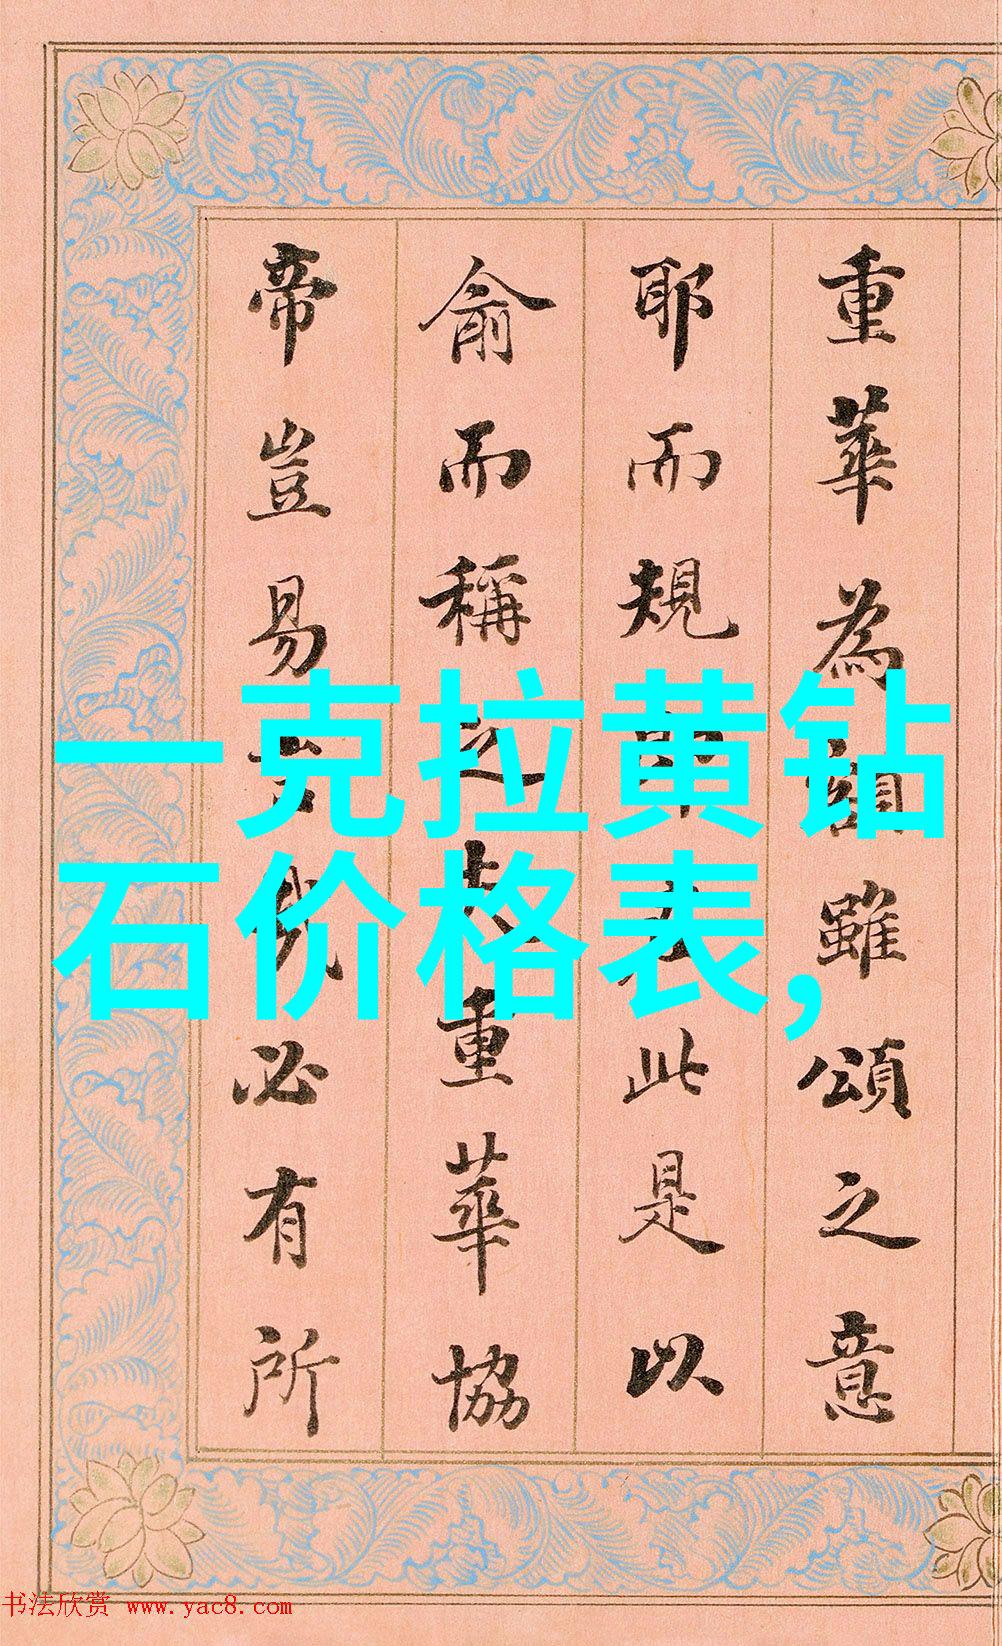 重華為雖頌之意
耶而規此是以
俞而稱重華協
帝豈易言哉必有所
一克拉黄钻
石价格表,
书法欣赏 www.yac8.com